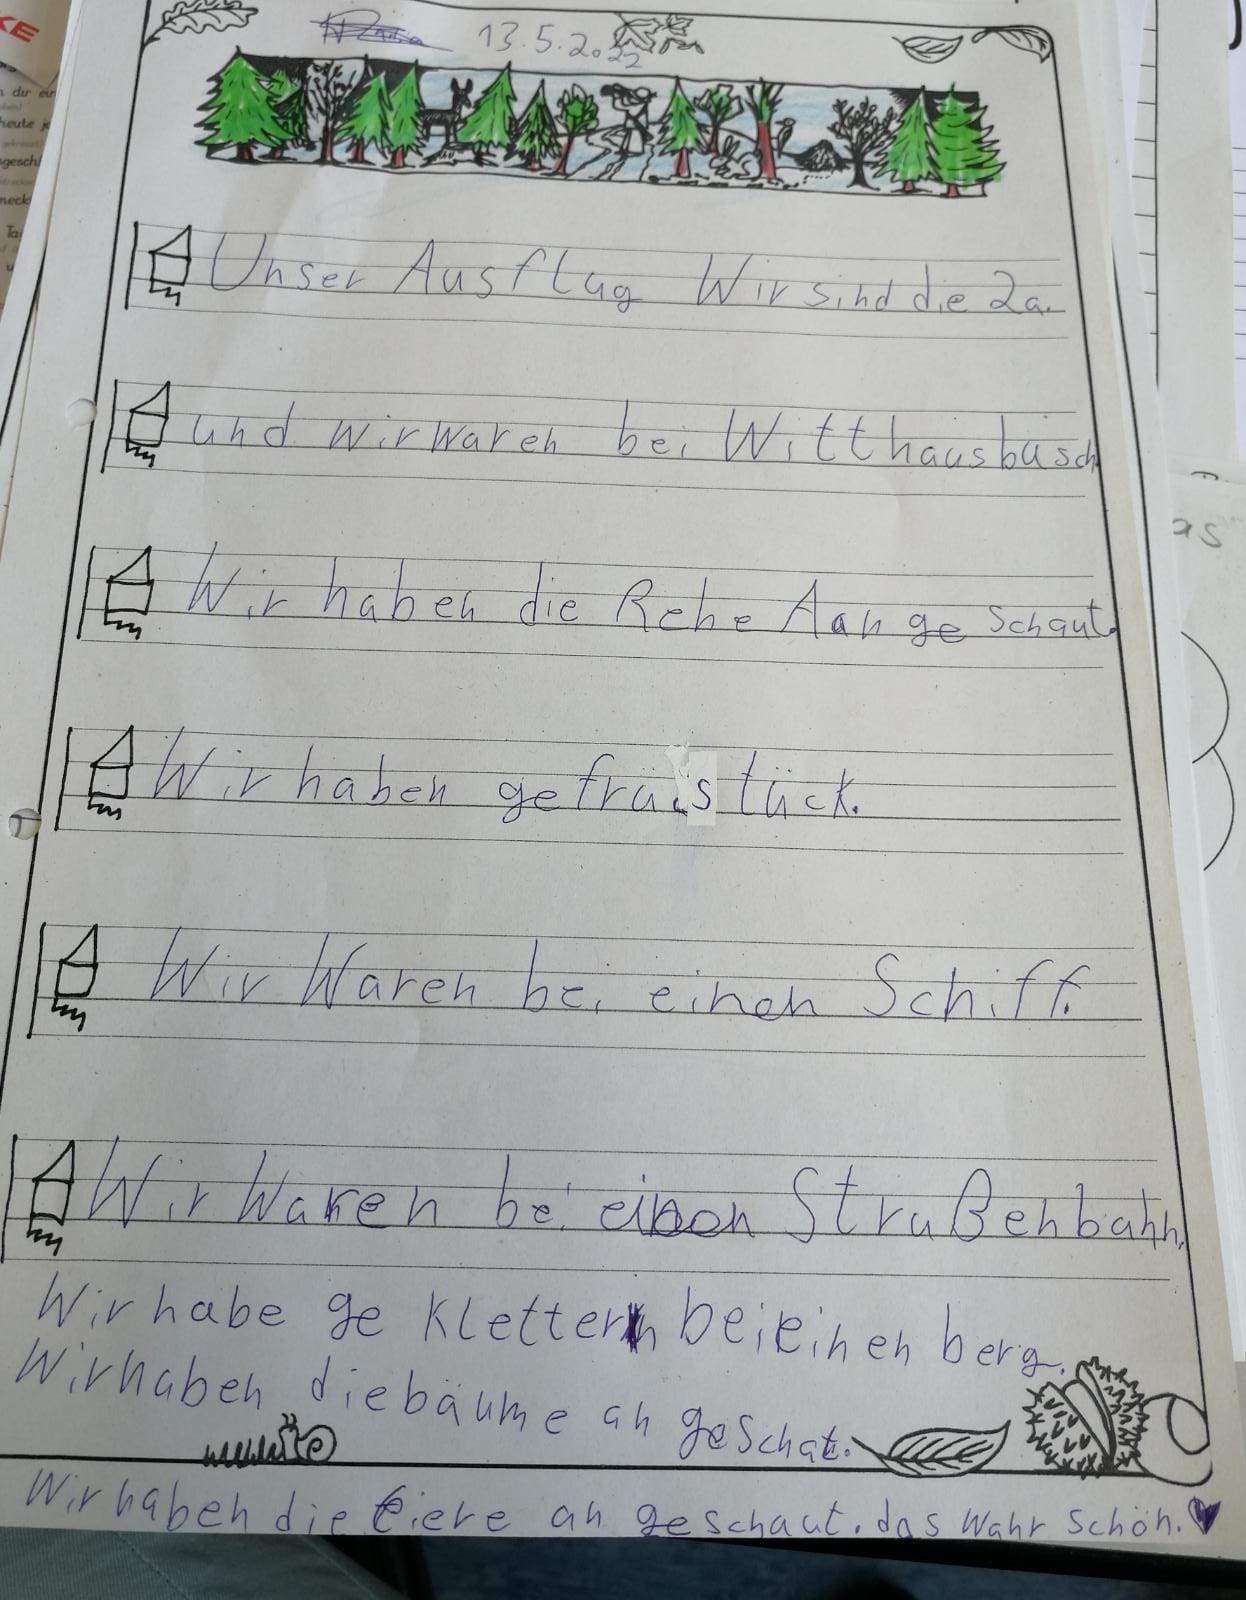 13.5.2022
Unser Ausflug Wir sind die 2a.
und wir waren bei Witthausbusch
Wir haben die Rehe Aan ge schaut.
Wir haben gefrüstück.
Wir Waren bei einen Schiff.
Wir Waren bei einen Straßenbahn.
Wir habe ge klettern bei einen berg.
Wir haben die bäume an geschat.
Wir haben die Tiere an geschaut. das wahr schön.